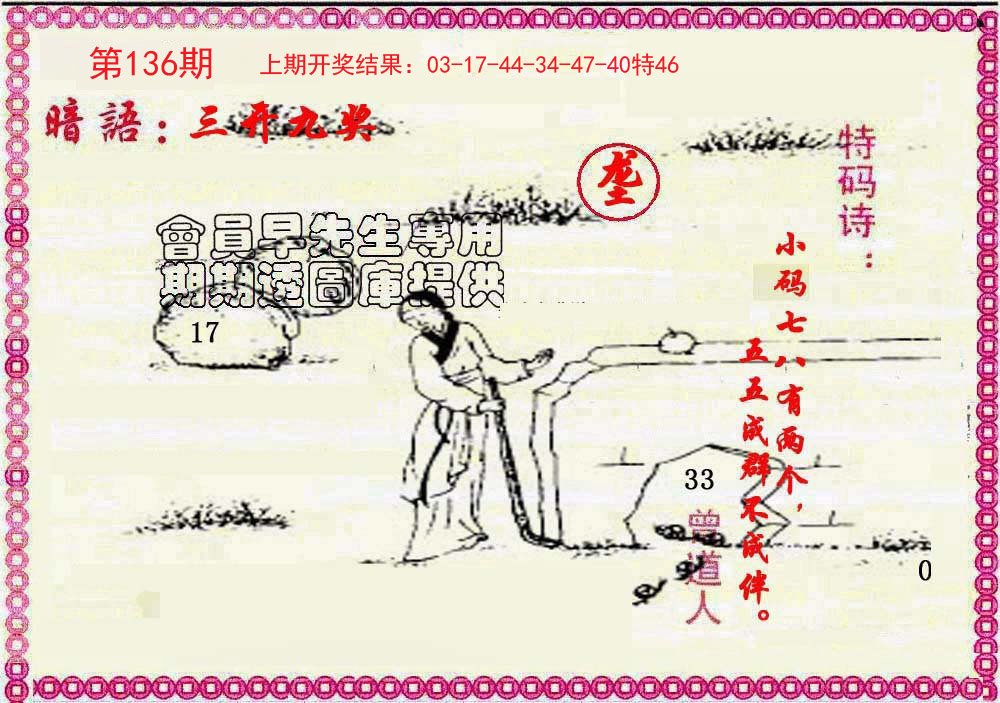 第136期
上期开奖结果：03-17-44-34-47-40特46
暗語：三开九奖
垄
特码诗：
小码七八有两个，
五五成群不成伴。
會員早先生專用
期期透圖庫提供
17
33
曾道人
0